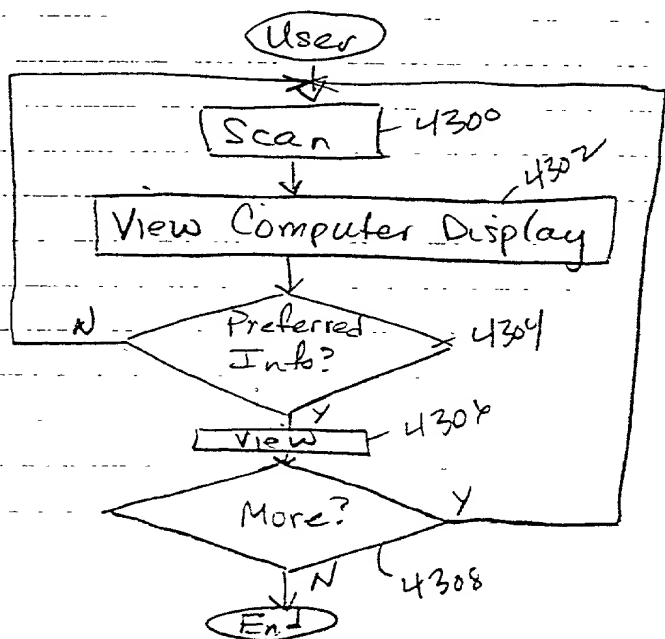 User
Scan 4300
4302
View Computer Display
Preferred
Info?
4304
N
Y
View 4306
More?
Y
N
4308
End